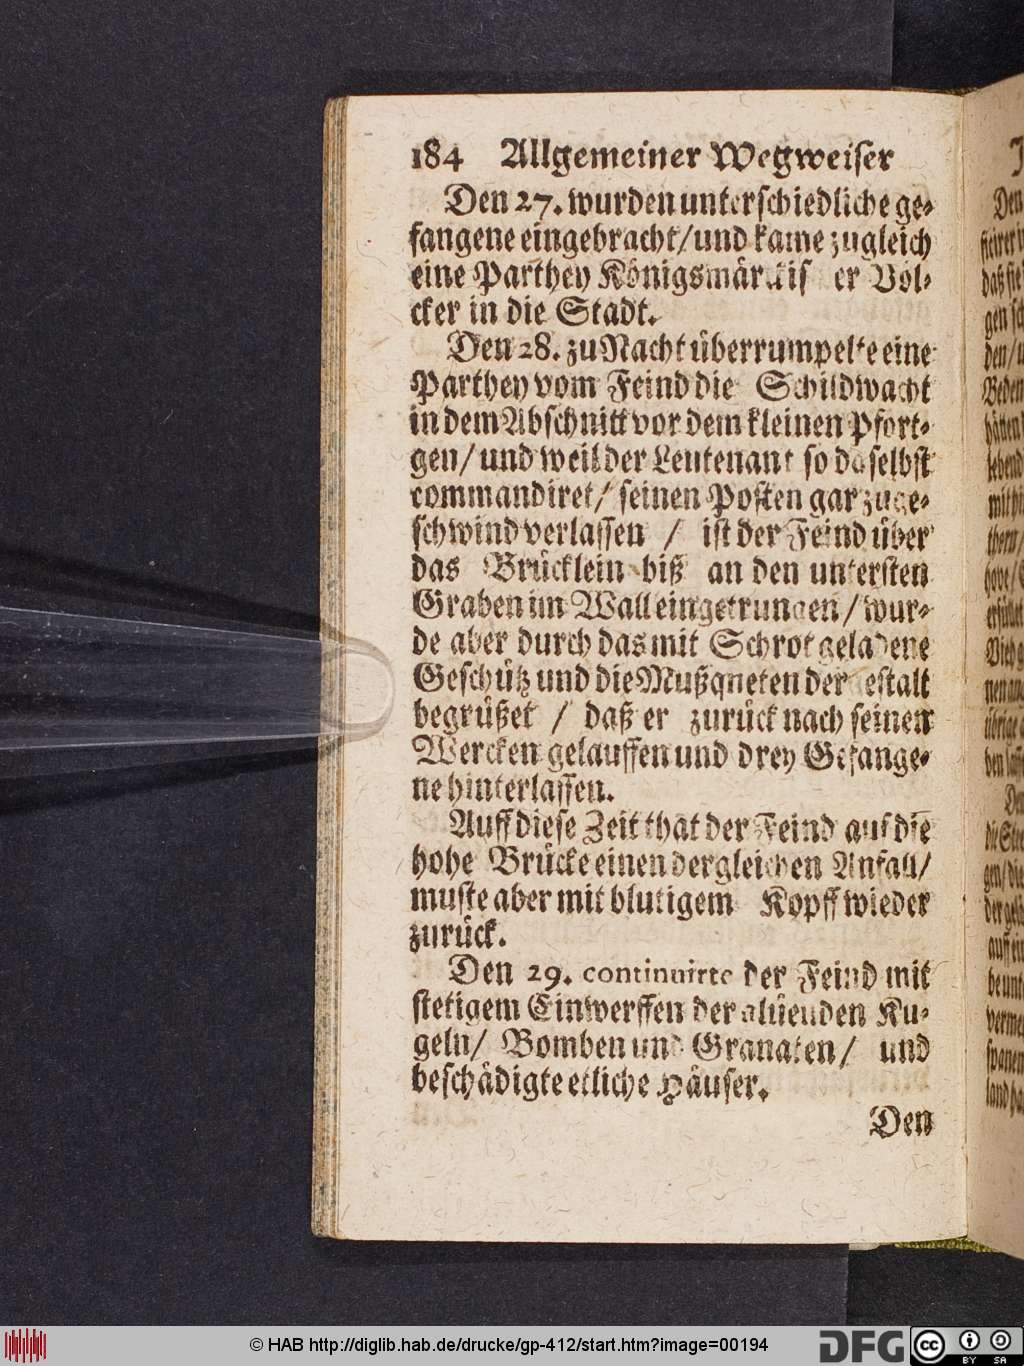 184 Allgemeiner Wegweiser
Den 27. wurden unterschiedliche ge-
fangene eingebracht/und kame zugleich
eine Parthey er Völ-
cker in die Stadt.
Den 28. zu Nacht überrumpelte eine
Parthey vom Feind die Schildwacht
in dem Abschnitt vor dem kleinen Pfört-
gen/ und weil der Leutenant so daselbst
commandiret/ seinen Posten gar zu ge-
schwind verlassen / ist der Feind über
das Brücklein biß an den untersten
Graben im Wall eingetrungen / wur-
de aber durch das mit Schrot geladene
Geschütz und die Mußqneten der estalt
begrüßet / daß er zurück nach seinen
Wercken gelauffen und drey Gefange-
ne hinterlassen.
Auff diese Zeit that der Feind auf die
hohe Brücke einen dergleichen Anfall/
muste aber mit blutigem Kopff wieder
zurück.
Den 29. continuirte der Feind mit
stetigem Einwerffen der glüenden Ku-
geln/ Bomben und Granaten/ und
beschädigte etliche Häuser.
Den
© HAB http://diglib.hab.de/drucke/gp-412/start.htm?image=00194
DFG
cc
BY SA